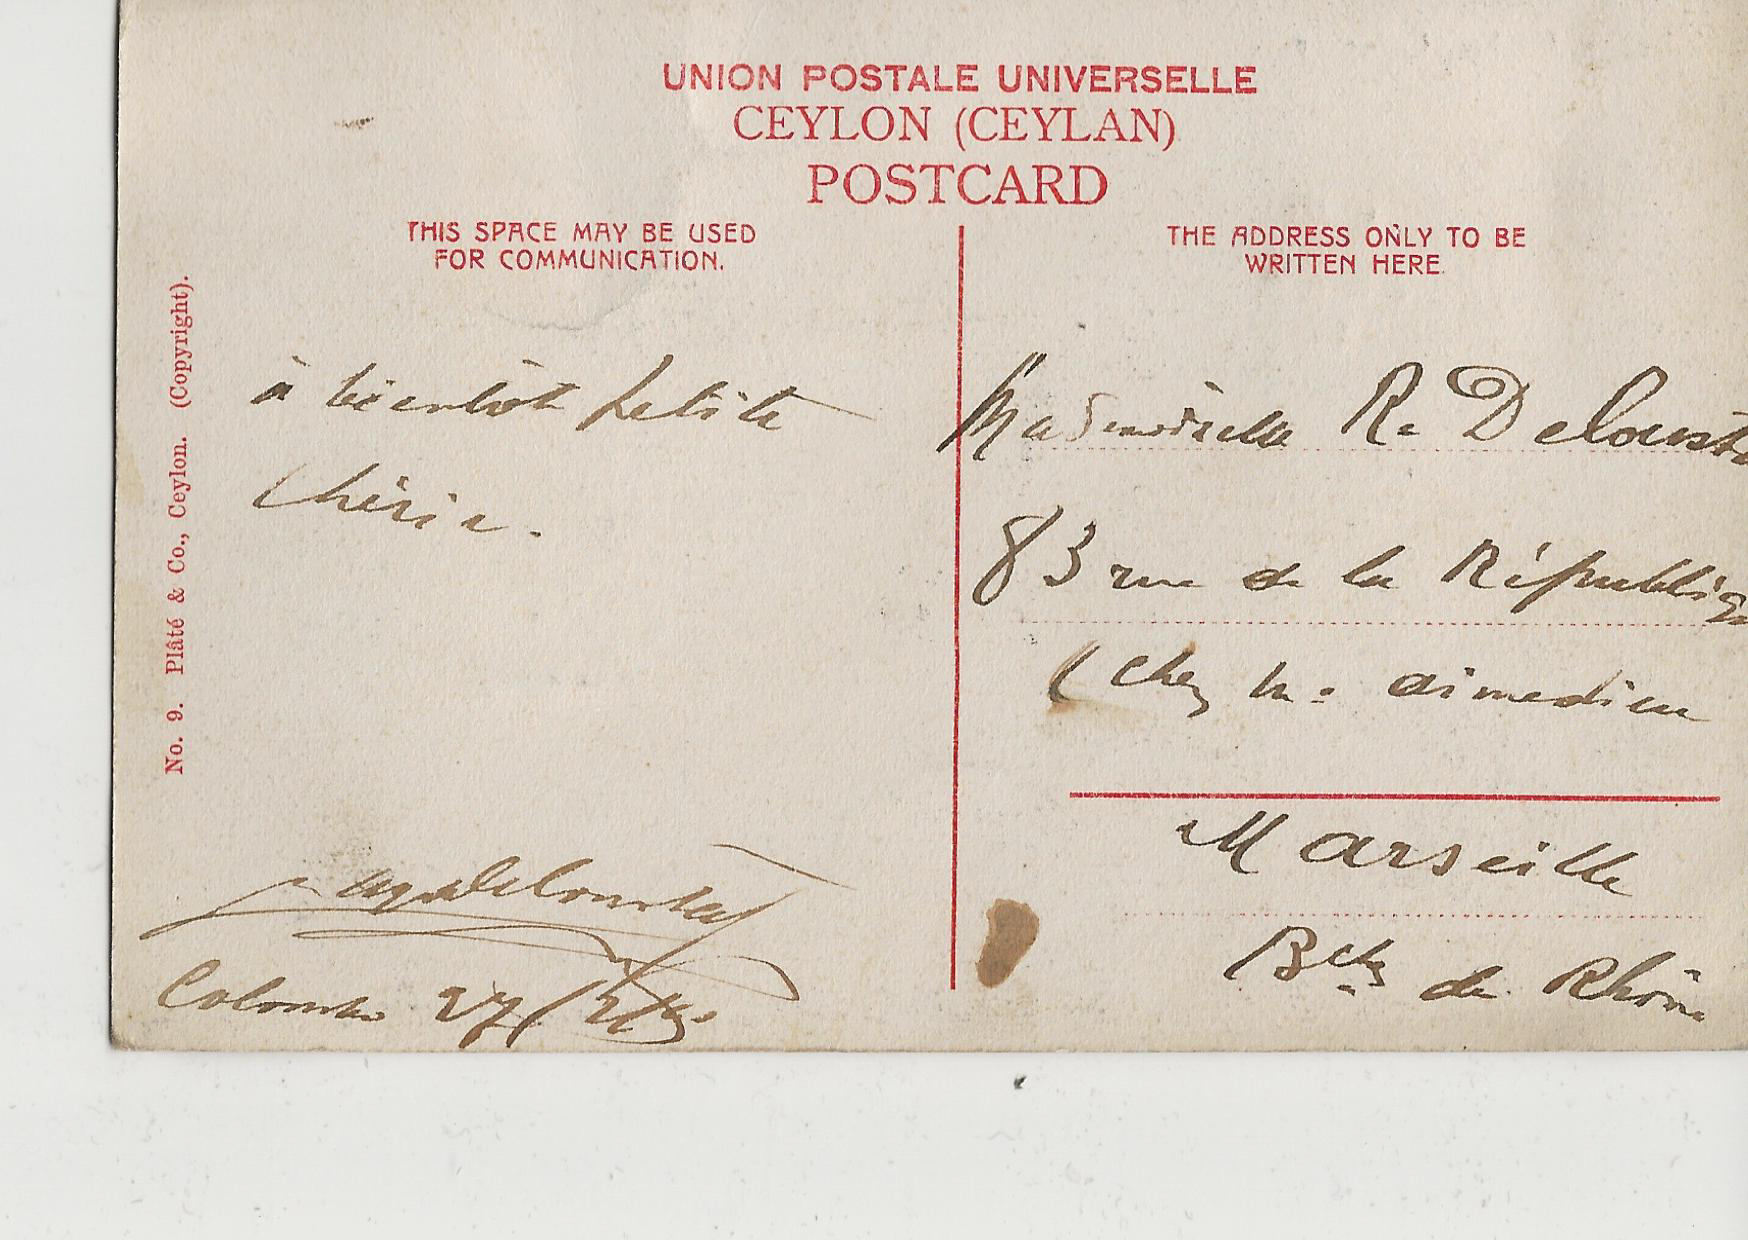 UNION POSTALE UNIVERSELLE
CEYLON (CEYLAN)
POSTCARD
THIS SPACE MAY BE USED
FOR COMMUNICATION.
THE ADDRESS ONLY TO BE
WRITTEN HERE.
No. 9. Plâté & Co., Ceylon. (Copyright).
à bientôt petite
chérie.
Colombo 27/2/
Mademoiselle R. Deloust
83 rue de la Républiq
(chez M. aimedieu
Marseille
Bches du Rhône